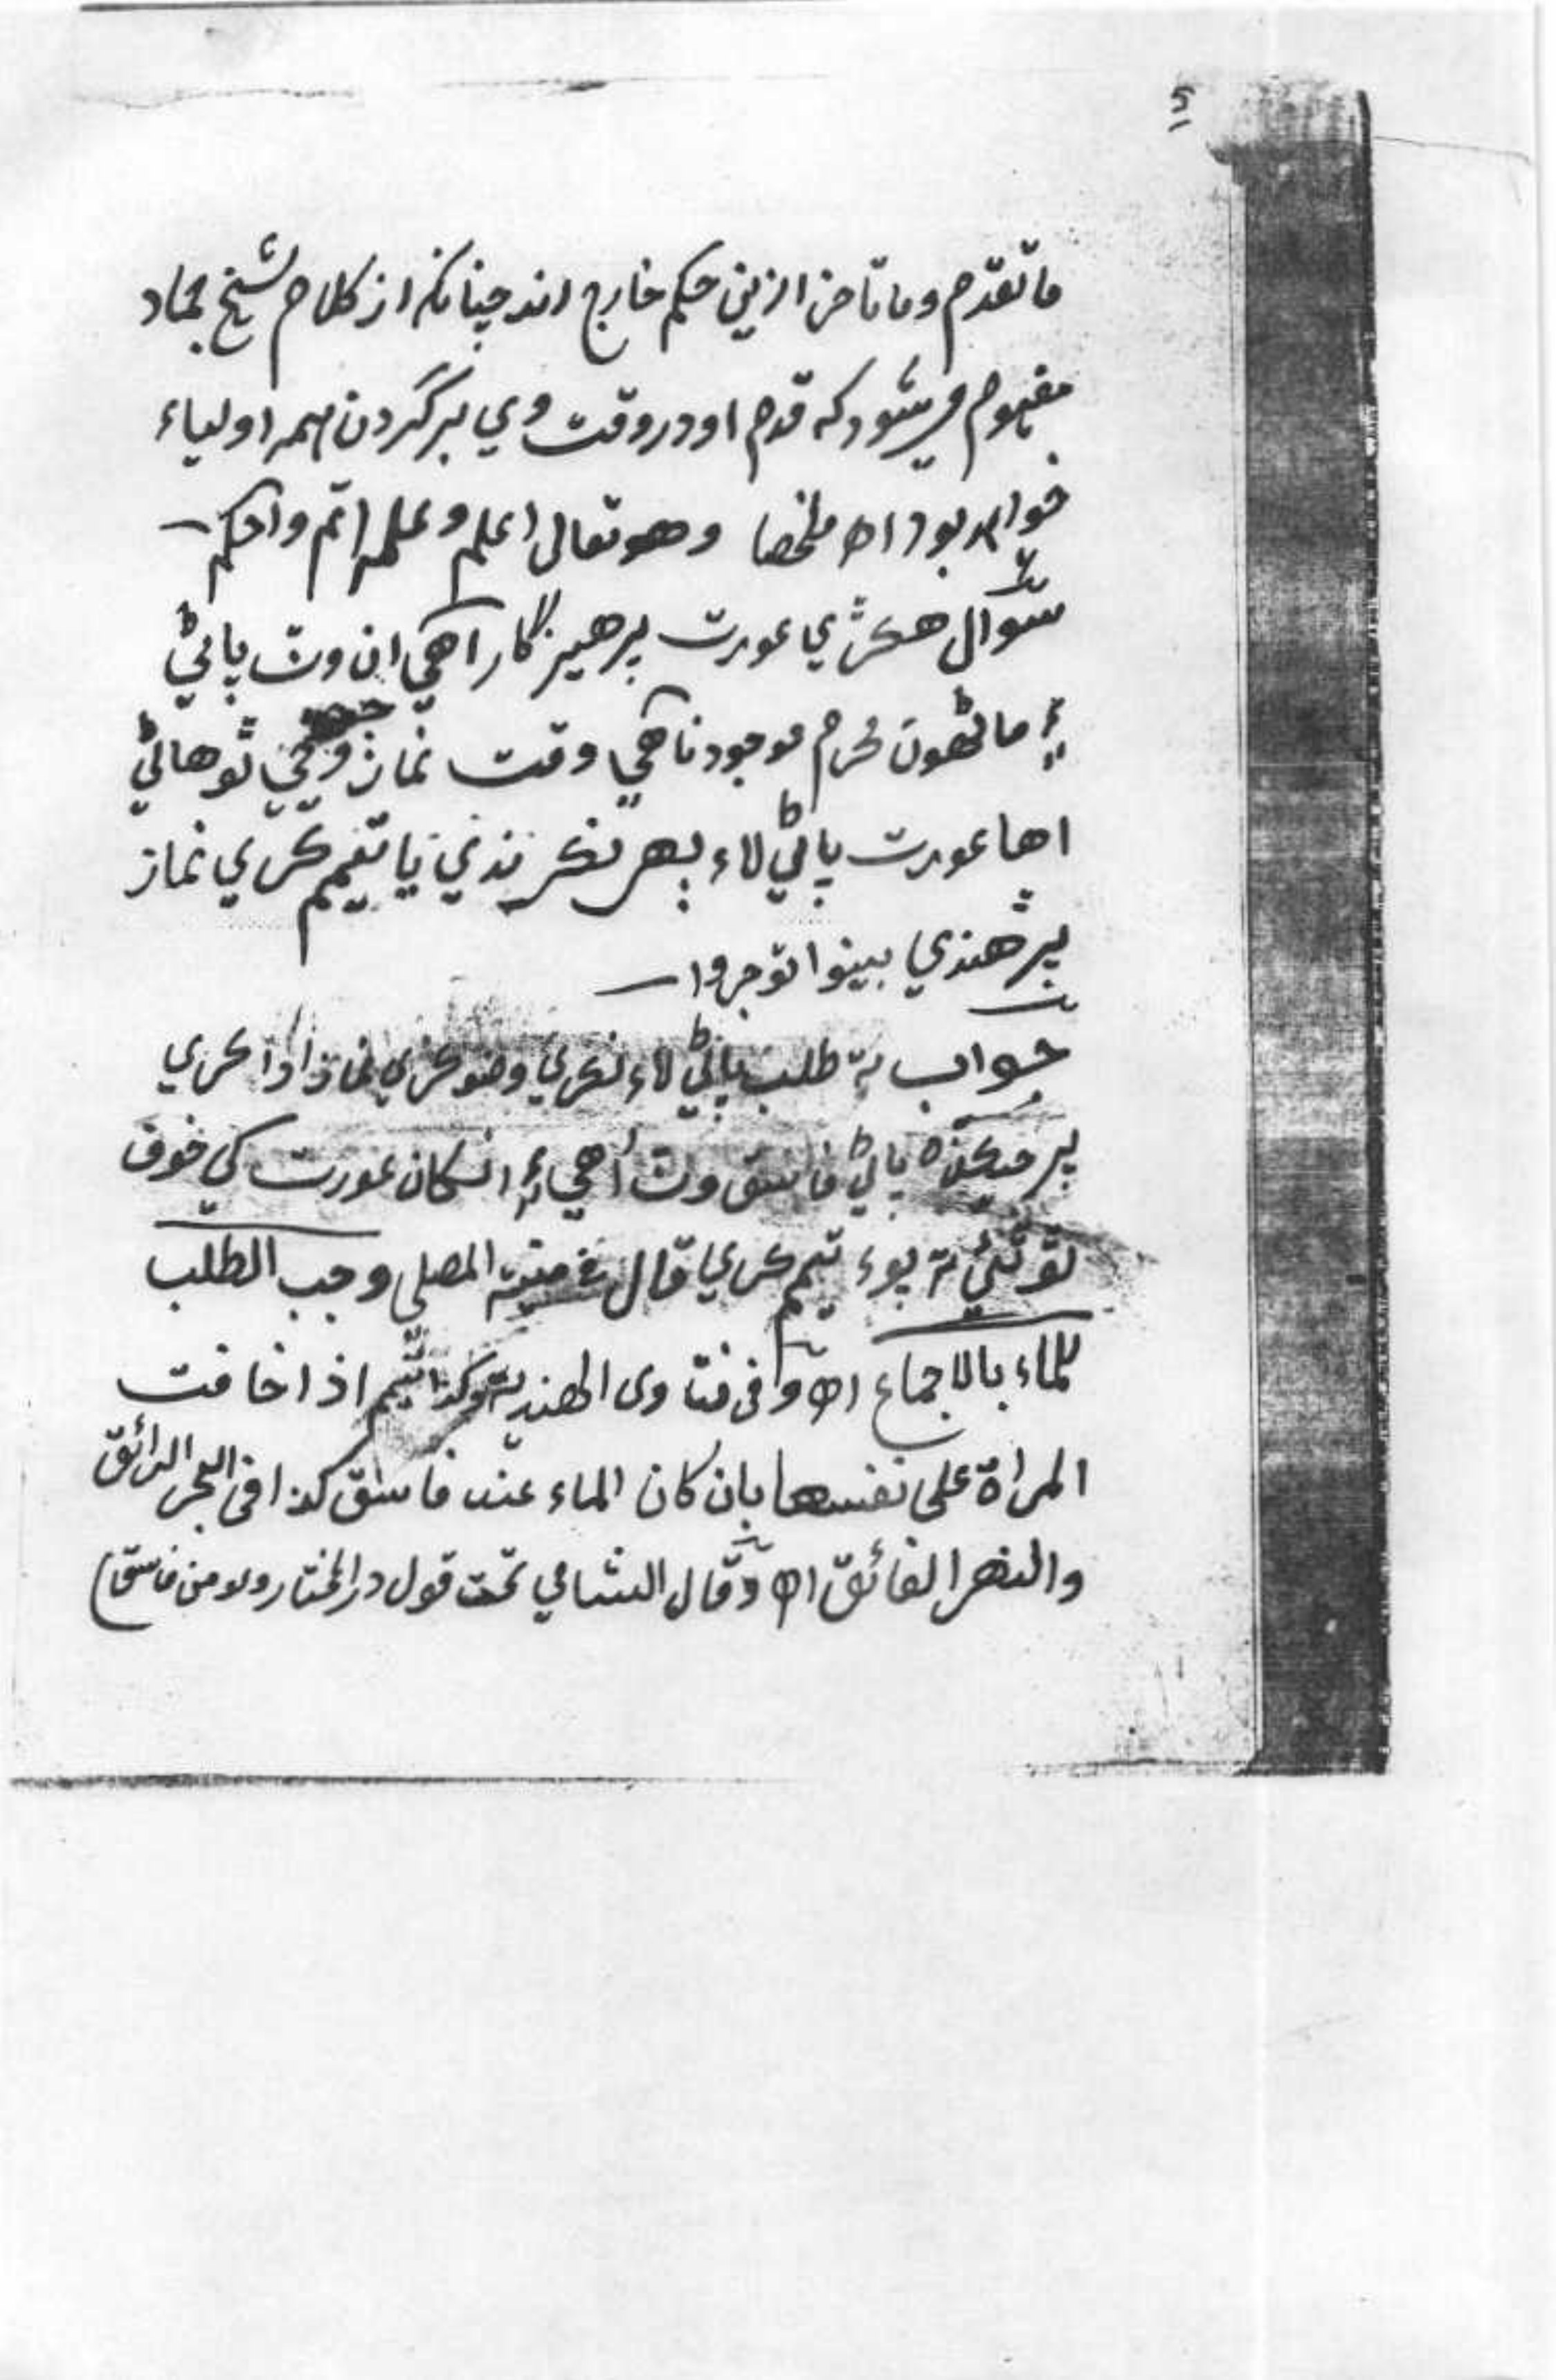 ما تقدّم وما تاخر ازين حكم خارج اند چنانكه از كلام شيخ حماد
مفهوم ميشود كه قدم او در وقت وي بر گردن همه اولياء
خواهد بود اھ ملخصا وهو تعالى اعلم وعلمه اتم واحكم
سوال هڪڙي عورت پرهيزگار آهي ان وٽ پاڻي
۽ ماڻهون محرم موجود ناهي وقت نماز وڃي ٿو هاڻي
اها عورت پاڻي لاء ٻهر نڪرندي يا تيمم ڪري نماز
پڙهندي بينوا توجروا
جواب ته طلب پاڻي لاء نڪري وضو ڪري نماز ادا ڪري
پر جيڪڏه پاڻي فاسق وٽ آهي ۽ انكان عورت كي خوف
ٿو ٿئي ته پوء تيمم ڪري قال في منية المصلي وجب الطلب
للماء بالاجماع اھ وفى فتاوى الهندية وكذا تيمم اذا خافت
المراة على نفسها بان كان الماء عند فاسق كذا فى البحر الرائق
والنهر الفائق اھ وقال الشامي تحت قول در المختار ولو من فاسق